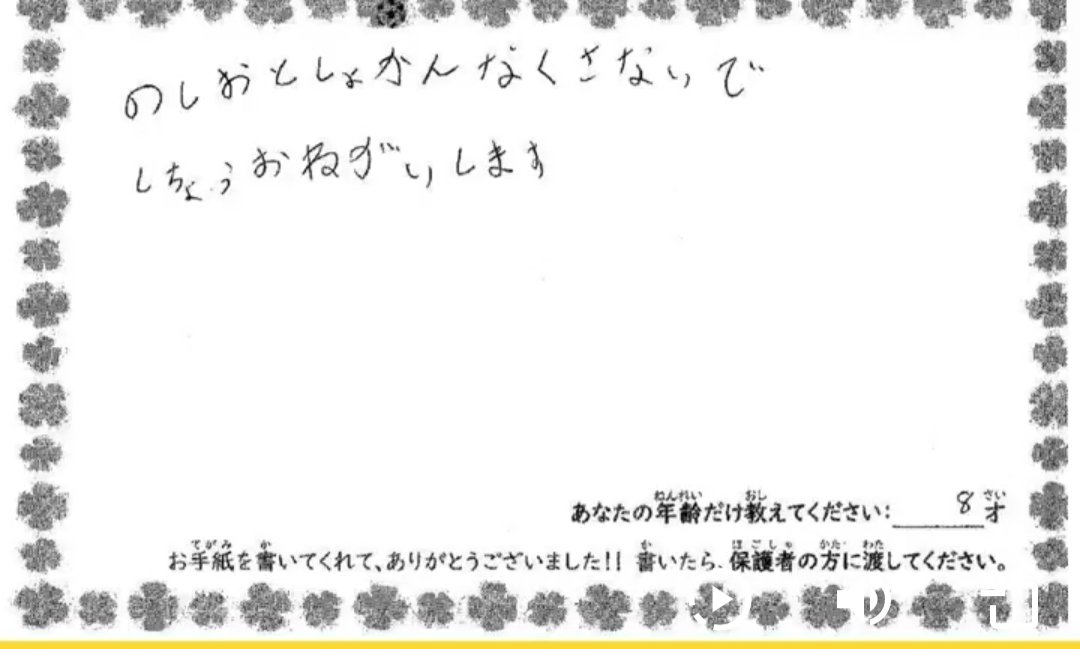 のしおとしょかんなくさないで
しちょうおねがいします
あなたの年齢だけ教えてください: 8才
お手紙を書いてくれて、ありがとうございました!! 書いたら、保護者の方に渡してください。